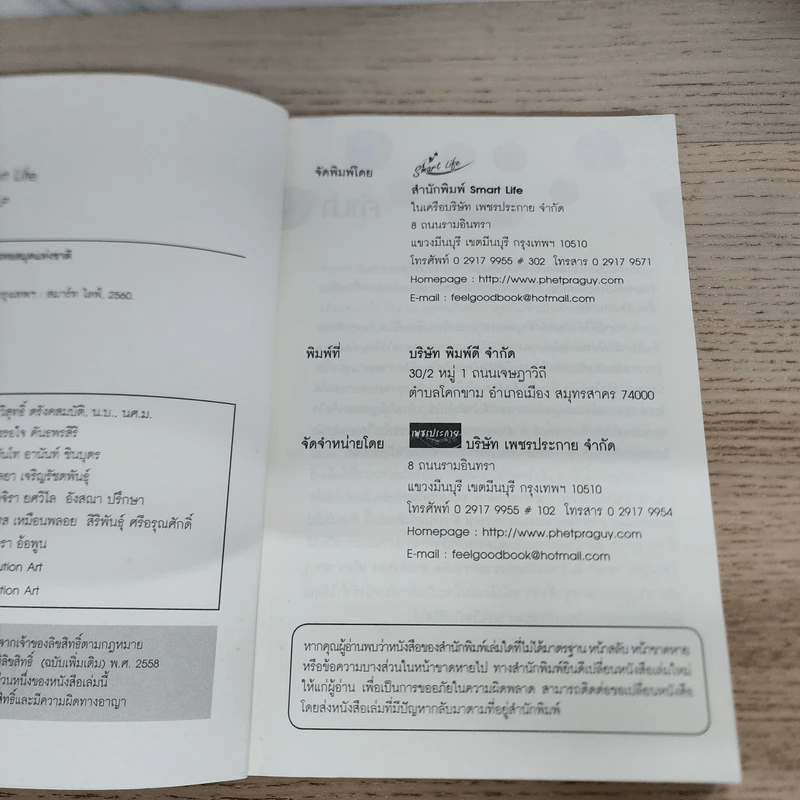 Life
หอสมุดแห่งชาติ
กรุงเทพฯ : สมาร์ท ไลฟ์, 2560.
วิสุทธิ์ ตรังคสมบัติ, น.บ., นศ.ม.
คันธพรสิริ
อานันท์ ชินบุตร
เจริญรัชตพันธุ์
ยศวิไล อังสณา ปรึกษา
เหมือนพลอย สิริพันธุ์ ศรีอรุณศักดิ์
อ้อพูน
ution Art
tion Art
จากเจ้าของลิขสิทธิ์ตามกฎหมาย
ลิขสิทธิ์ (ฉบับเพิ่มเติม) พ.ศ. 2558
ส่วนหนึ่งของหนังสือเล่มนี้
สิทธิ์และมีความผิดทางอาญา
จัดพิมพ์โดย Smart Life
สำนักพิมพ์ Smart Life
ในเครือบริษัท เพชรประกาย จำกัด
8 ถนนรามอินทรา
แขวงมีนบุรี เขตมีนบุรี กรุงเทพฯ 10510
โทรศัพท์ 0 2917 9955 # 302 โทรสาร 0 2917 9571
Homepage : http://www.phetpraguy.com
E-mail : feelgoodbook@hotmail.com
พิมพ์ที่ บริษัท พิมพ์ดี จำกัด
30/2 หมู่ 1 ถนนเจษฎาวิถี
ตำบลโคกขาม อำเภอเมือง สมุทรสาคร 74000
จัดจำหน่ายโดย เพชรประกาย บริษัท เพชรประกาย จำกัด
8 ถนนรามอินทรา
แขวงมีนบุรี เขตมีนบุรี กรุงเทพฯ 10510
โทรศัพท์ 0 2917 9955 # 102 โทรสาร 0 2917 9954
Homepage : http://www.phetpraguy.com
E-mail : feelgoodbook@hotmail.com
หากคุณผู้อ่านพบว่าหนังสือของสำนักพิมพ์เล่มใดที่ไม่ได้มาตรฐาน หน้าสลับ หน้าขาดหาย
หรือข้อความบางส่วนในหน้าขาดหายไป ทางสำนักพิมพ์ยินดีเปลี่ยนหนังสือเล่มใหม่
ให้แก่ผู้อ่าน เพื่อเป็นการขออภัยในความผิดพลาด สามารถติดต่อขอเปลี่ยนหนังสือ
โดยส่งหนังสือเล่มที่มีปัญหากลับมาตามที่อยู่สำนักพิมพ์